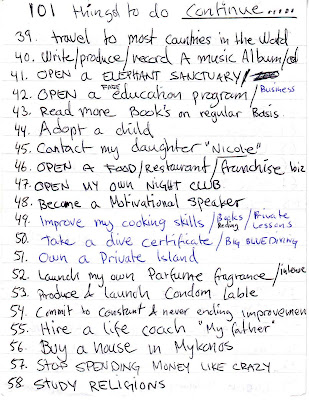 101 things to do Continue.....
39. travel to most countries in the World
40. Write/produce/record A music Album/cd
41. OPEN a ELEPHANT SANCTUARY/
42. OPEN a FREE education program/Business
43. Read more Book's on regular Basis.
44. Adopt a child
45. Contact my daughter "Nicole"
46. OPEN A FOOD/Restaurant/franchise biz
47. OPEN MY OWN NIGHT CLUB.
48. Became a Motivational speaker
49. Improve my cooking skills/Books Reding/Private Lessons
50. Take a dive certificate/BIG BLUE DIVING
51. Own a Private Island
52. Launch my own Parfume fragrance/
53. Produce & launch Condom lable
54. Commit to Constant & never ending improvemen
55. Hire a life coach "My father"
56. Buy a house in Mykonos
57. STOP SPENDING MONEY LIKE CRAZY
58. STUDY RELIGIONS